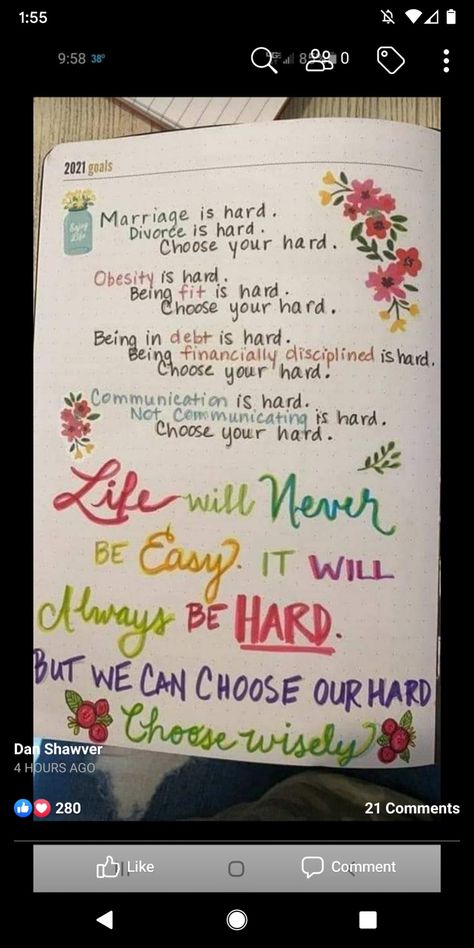 1:55
9:58 38°
0
2021 goals
Enjoy
Life
Marriage is hard.
Divorce is hard.
Choose your hard.
Obesity is hard.
Being fit is hard.
Choose your hard.
Being in debt is hard.
Being financially disciplined is hard.
Choose your hard.
Communication is hard.
Not Communicating is hard.
Choose your hard.
Life will Never
BE Easy. IT WILL
Always BE HARD.
BUT WE CAN CHOOSE OUR HARD
Choose wisely
Dan Shawver
4 HOURS AGO
280 21 Comments
Like Comment